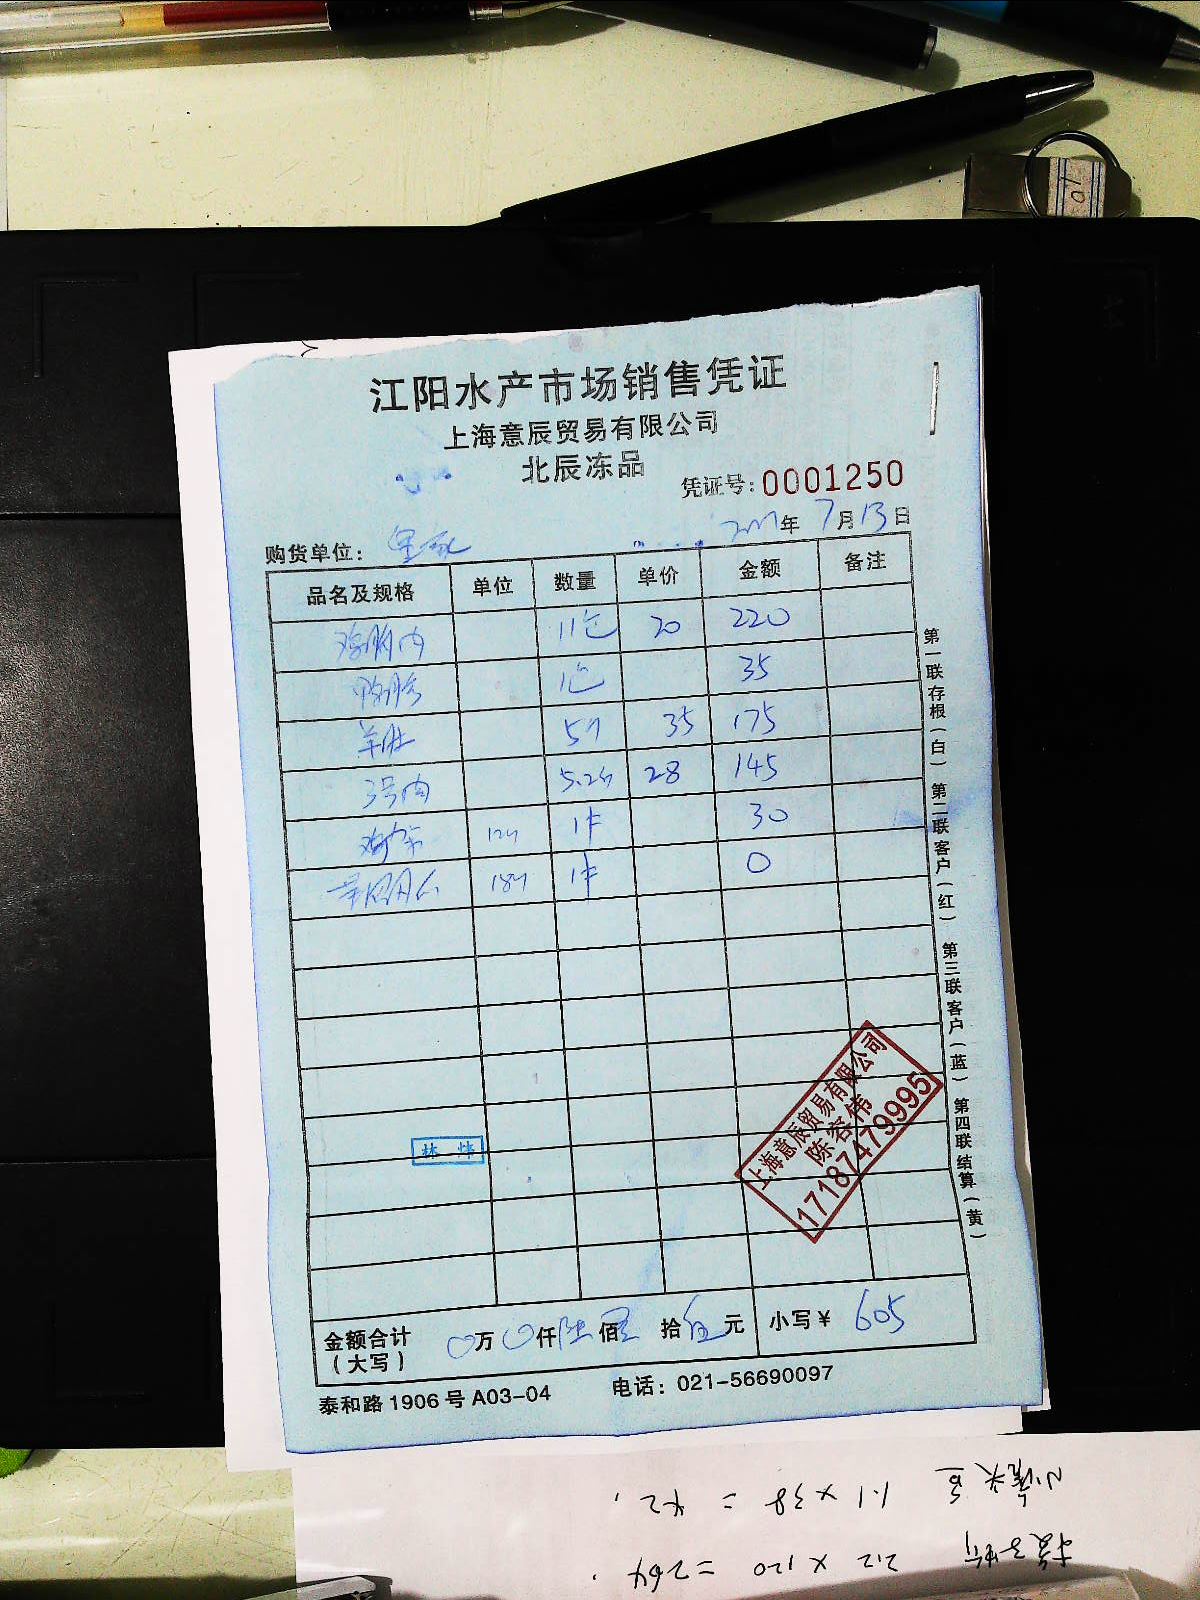 江阳水产市场销售凭证
上海意辰贸易有限公司
北辰冻品
凭证号: 0001250
年 7月13日
购货单位:
品名及规格 单位 数量 单价 金额 备注
鸡胸肉 11包 20 220
鸭胗 1包 35
羊肚 5斤 35 175
3号肉 5.2斤 28 145
12斤 1件 30
18斤 1件 0
金额合计(大写) 0万0仟陆佰零拾伍元 小写¥ 605
泰和路1906号A03-04 电话: 021-56690097
第一联存根(白) 第二联客户(红) 第三联客户(蓝) 第四联结算(黄)
上海意辰贸易有限公司
陈容伟
17187479995
1.1 x 38 = 42,
2.2 x 120 = 264.